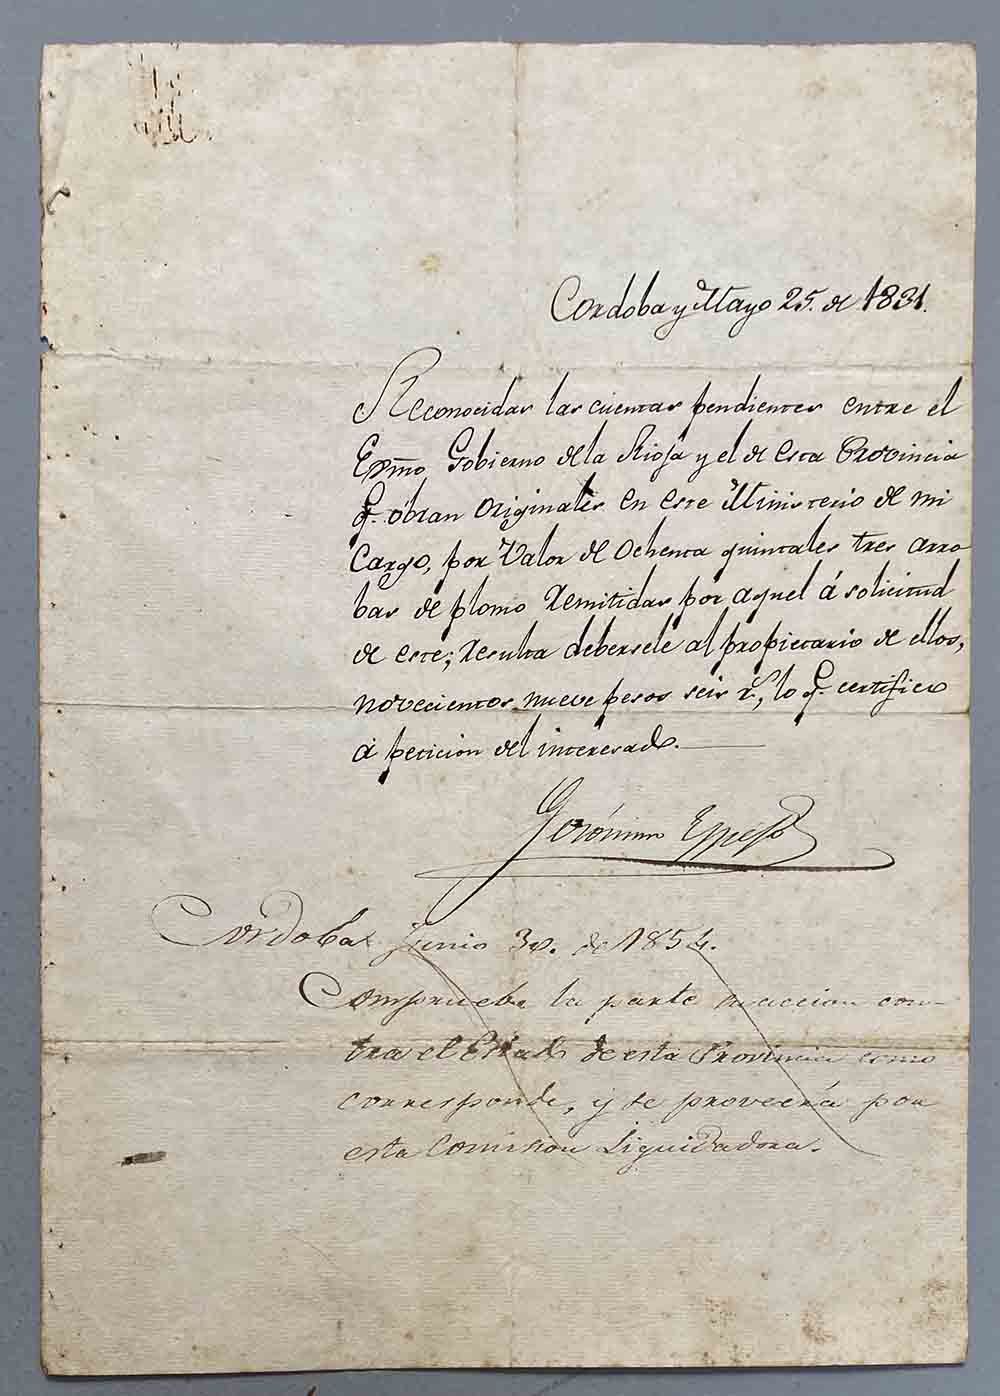 Cordoba y Mayo 25. de 1831.
Reconocidas las cuentas pendientes entre el
Exmo Gobierno de la Rioja y el de esta Provincia
q.e obran originales en este Ministerio de mi
Cargo, por Valor de Ochenta quintales tres arro
bas de plomo remitidas por aquel á solicitud
de este; resulta debersele al propietario de ellos,
novecientos nueve pesos seis r.s, lo q.e certifico
á peticion del interesado.
Gerónimo
Cordoba Junio 30. de 1854.
Compruebe la parte su accion con-
tra el Estado de esta Provincia como
corresponde, y se proveerá por
esta Comision Liquidadora.